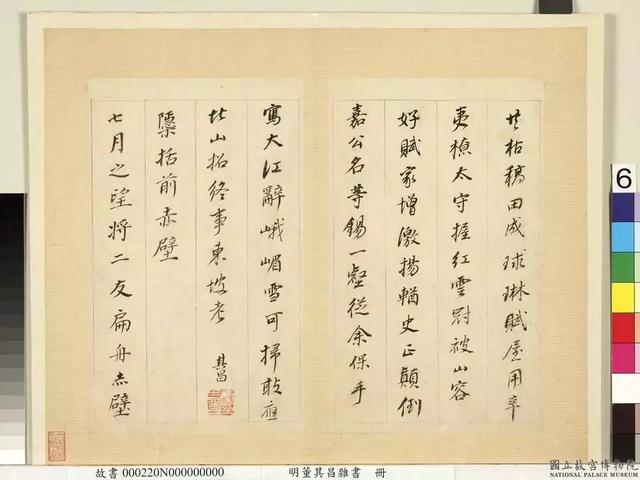 枯槁田成球琳賦屋用卒
夷樵太守握紅雲尉被山容
好賦家增激揚輶史正顛倒
嘉公名等錫一壑從余保手
寫大江辭峨嵋雪可掃敢應
北山招終事東坡老
其昌
檃括前赤壁
七月之望將二友扁舟赤壁
6
故書 000220N000000000 明董其昌雜書 冊
國立故宮博物院
NATIONAL PALACE MUSEUM